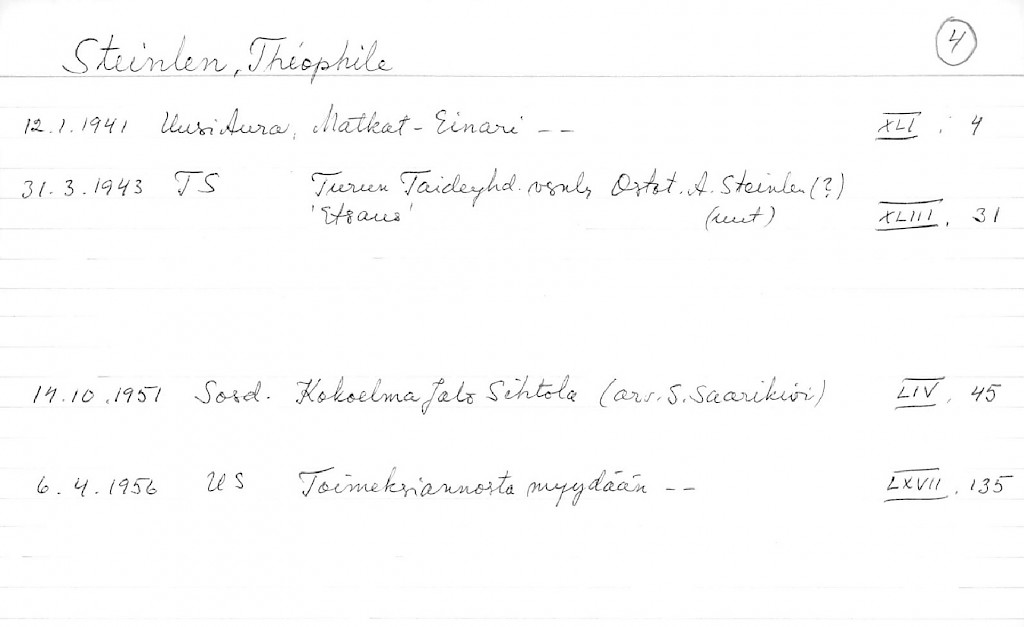 Steinlen, Théophile 4
12.1.1941 Uusi Aura, Matkat - Einari -- XLI, 4
31.3.1943 TS Turun Taideyhd. Ostot. A. Steinlen (?)
(mut) XLIII, 31
14.10.1951 Sosd. Kokoelma Jalo Sihtola (arv. S. Saarikivi) LIV, 45
6.4.1956 US Toimeksiannosta myydään -- LXVII, 135